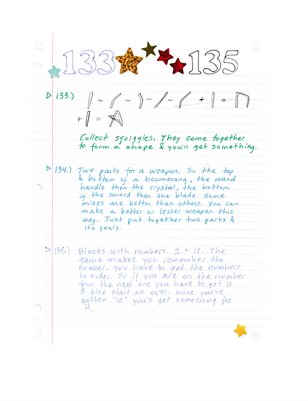 133 135
133.)
+ 1 =
+ 1 =
Collect squiggles. They come together
to form a shape & you'll get something.
134.) Two parts for a weapon. So the top
& bottom of a boomerang, the wand
handle then the crystal, the bottom
of the sword then the blade. Some
mixes are better then others. You can
make a better or lesser weapon this
way. Just put together two parts &
it's yours.
135.) Blocks with numbers. 1 - 10. The
game makes you remember the
number. You have to get the numbers
in order. So if you are on the number
four the next one you have to get is
5 else start all over. Once you've
gotten "10" you'll get something for
it.